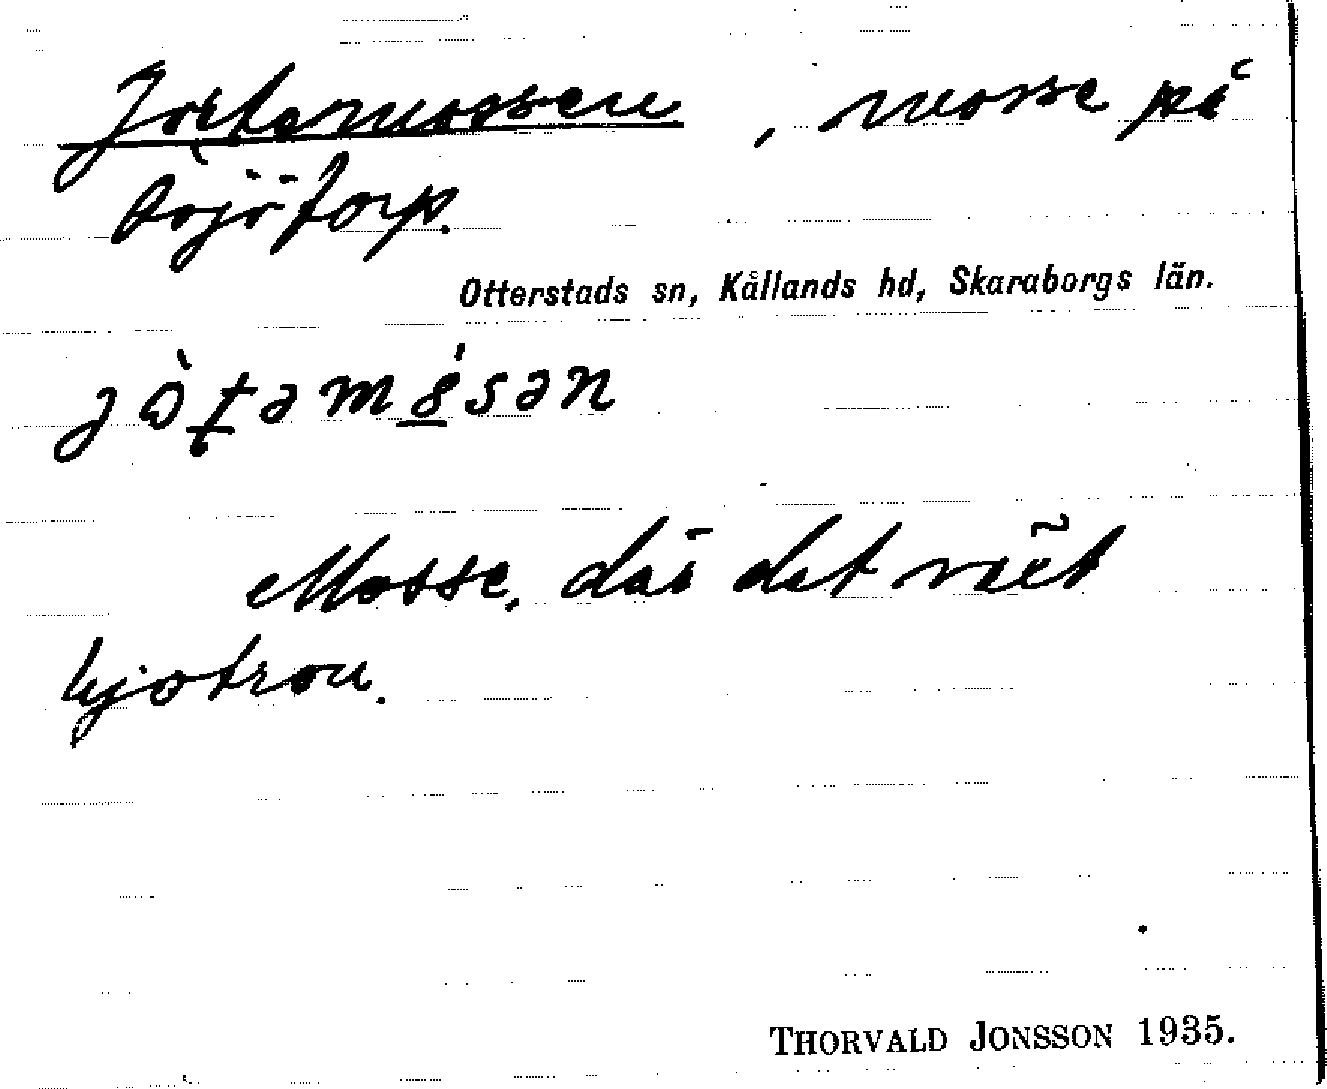 Jortamossen, mosse på
Söjötorp.
Otterstads sn, Kållands hd, Skaraborgs län.
Mosse, där det växt
hjotron.
THORVALD JONSSON 1935.